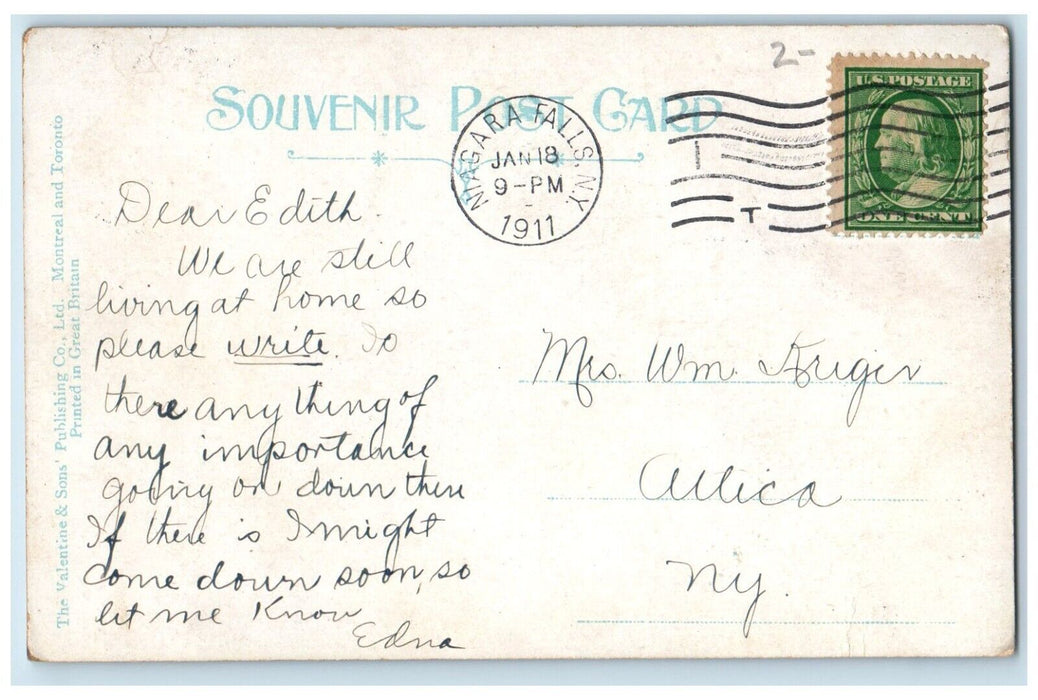 2-
U.S. POSTAGE
SOUVENIR POST CARD
NIAGARA FALLS, N.Y.
JAN 18
9-PM
1911
T
ONE CENT
Dear Edith.
We are still
living at home so
please write. Is
there any thing of
any importance
going on down there
If there is I might
come down soon, so
let me Know
Edna
Mrs. Wm. Kruger
Attica
Ny.
The Valentine & Sons' Publishing Co., Ltd. Montreal and Toronto
Printed in Great Britain